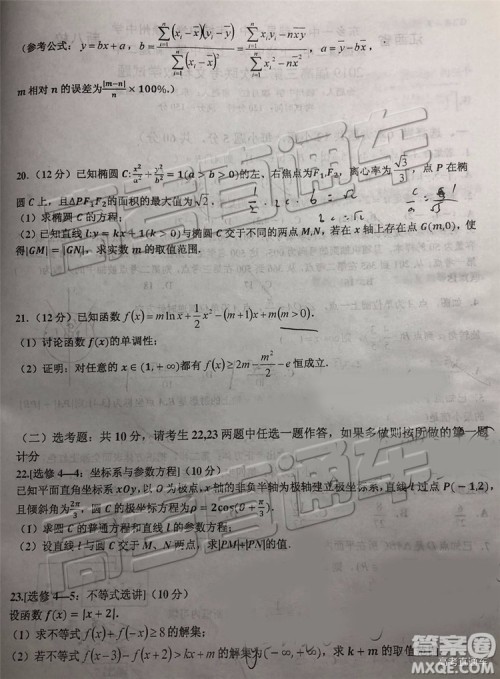 (参考公式：y=bx+a，b=\frac{\sum_{i=1}^{n}(x_i-\overline{x})(y_i-\overline{y})}{\sum_{i=1}^{n}(x_i-\overline{x})^2}=\frac{\sum_{i=1}^{n}x_iy_i-n\overline{x}\overline{y}}{\sum_{i=1}^{n}x_i^2-n\overline{x}^2}，a=\overline{y}-b\overline{x}，
m 相对 n 的误差为\frac{|m-n|}{n}×100%.)
20.（12 分）已知椭圆 C:\frac{x^2}{a^2}+\frac{y^2}{b^2}=1(a>b>0)的左、右焦点为F_1,F_2，离心率为\frac{\sqrt{3}}{3}，点 P 在椭
圆 C 上，且△PF_1F_2的面积的最大值为\sqrt{2}.
（1）求椭圆 C 的方程；
（2）已知直线 l:y=kx+1(k>0)与椭圆 C 交于不同的两点 M,N，若在 x 轴上存在点 G(m,0)，使
得|GM|=|GN|，求实数 m 的取值范围.
21.（12 分）已知函数 f(x)=m ln x+\frac{1}{2}x^2-(m+1)x+m(m>0).
（1）讨论函数 f(x)的单调性；
（2）证明：对任意的 x∈(1,+∞)都有 f(x)≥2m-\frac{m^2}{2}-e 恒成立.
（二）选考题：共 10 分，请考生 22,23 两题中任选一题作答，如果多做则按所做的第一题
计分
22.[选修 4—4：坐标系与参数方程]（10 分）
已知平面直角坐标系 xOy，以 O 为极点，x轴的非负半轴为极轴建立极坐标系，直线 l 过点 P(-1,2)，
且倾斜角为\frac{2π}{3}，圆 C 的极坐标方程为ρ=2cos(θ+\frac{π}{3}).
（1）求圆 C 的普通方程和直线 l 的参数方程；
（2）设直线 l 与圆 C 交于 M、N 两点，求|PM|+|PN|的值.
23.[选修 4—5：不等式选讲]（10 分）
设函数 f(x)=|x+2|.
（1）求不等式 f(x)+f(-x)≥8 的解集；
（2）若不等式 f(x-3)-f(x+2)>kx+m 的解集为(-∞,+∞)，求 k+m 的取值范围.
高考直通车
高考直通车
答案圈
MXQE.COM